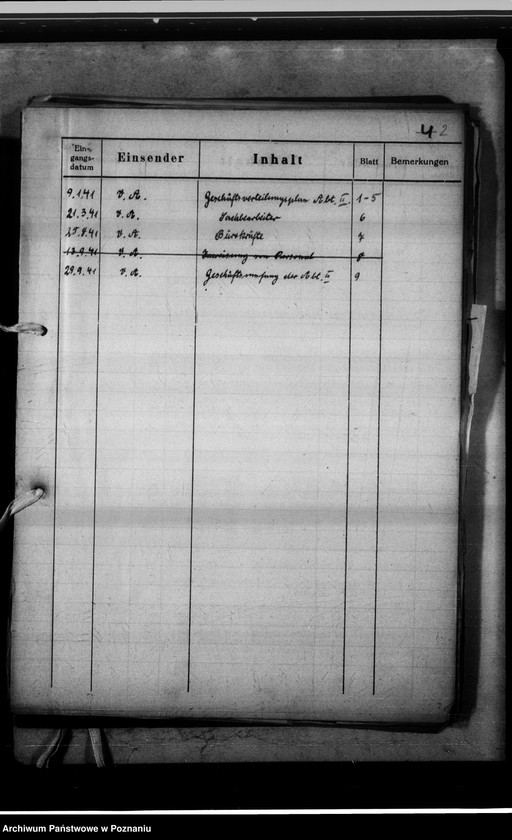 4 2
Ein-
gangs-
datum Einsender Inhalt Blatt Bemerkungen
9.1.41 v. A. Geschäftsverteilungsplan Abt. II 1-5
21.3.41 v. A. Sachbearbeiter 6
15.8.41 v. A. Bürokräfte 7
13.9.41 v. A. Zuweisung von Personal 8
29.9.41 v. A. Geschäfts der Abt. II 9
Archiwum Państwowe w Poznaniu